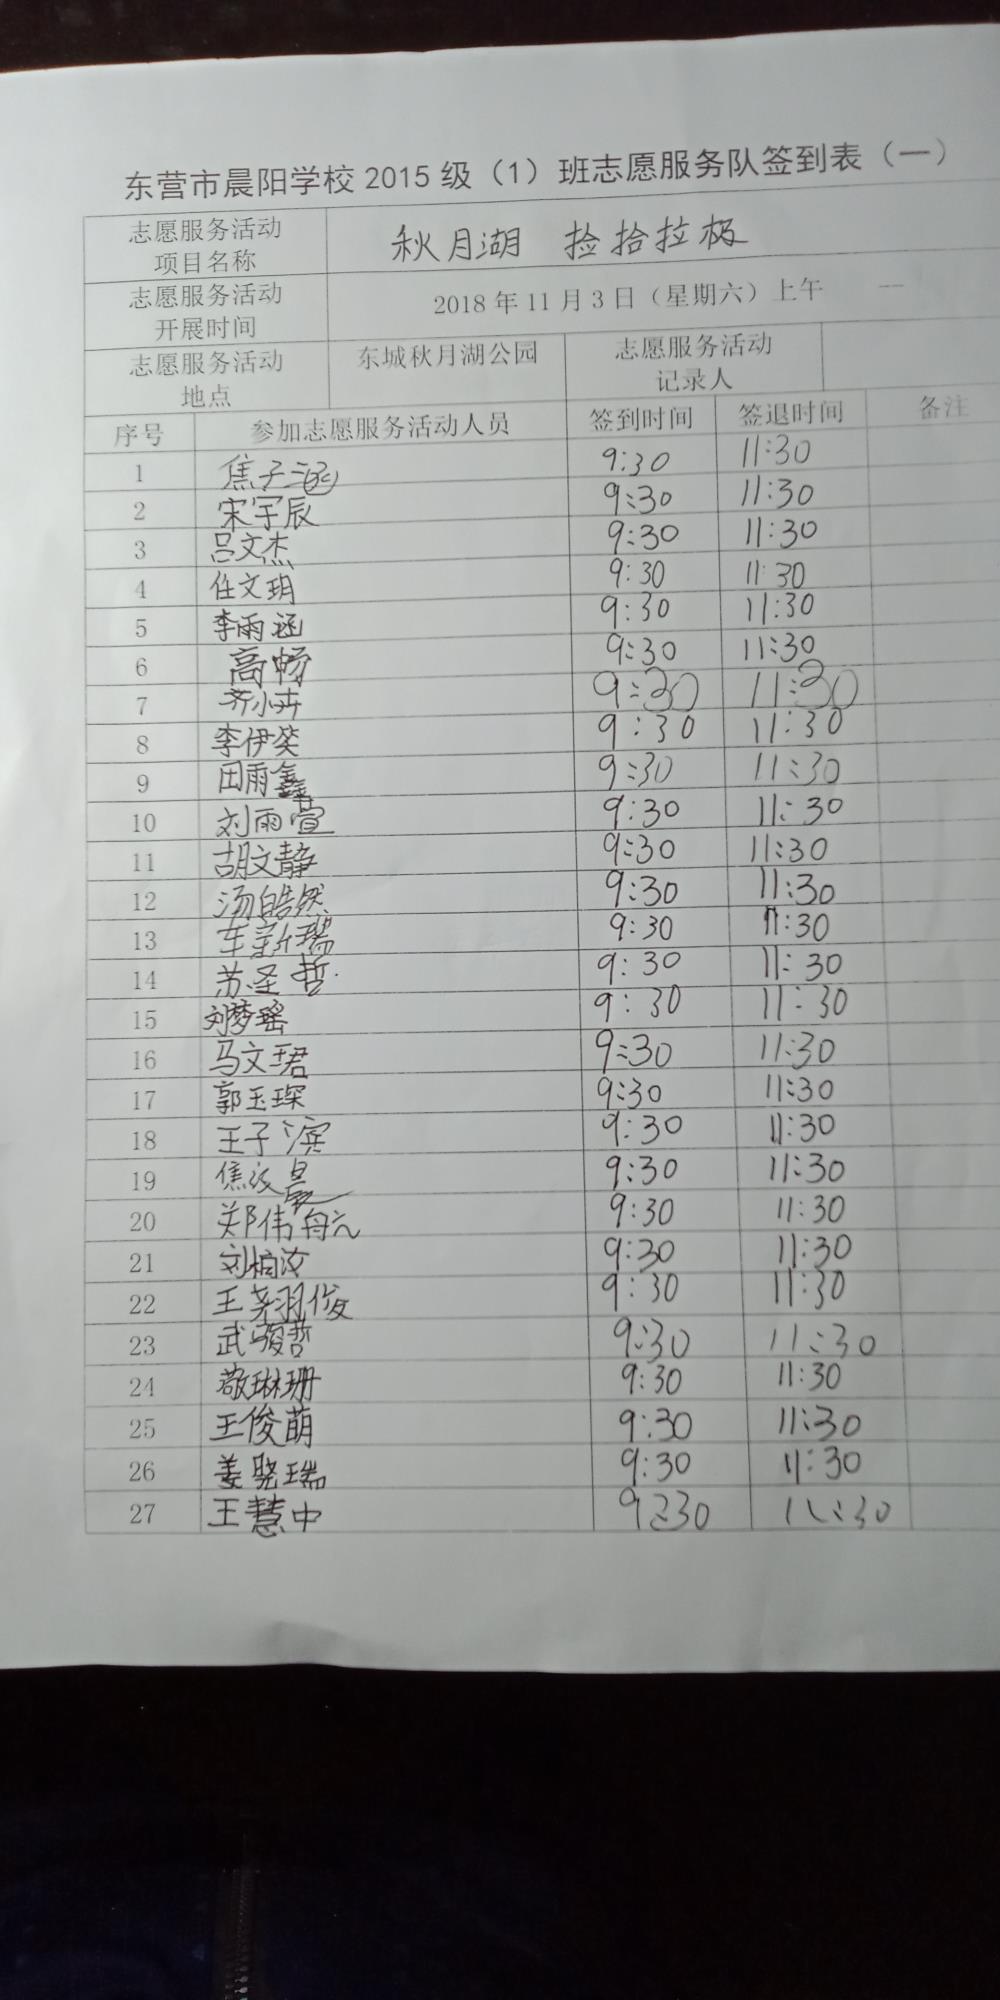 东营市晨阳学校 2015 级（1）班志愿服务队签到表（一）
志愿服务活动项目名称 秋月湖 捡拾垃圾
志愿服务活动开展时间 2018 年 11 月 3 日（星期六）上午 —
志愿服务活动地点 东城秋月湖公园 志愿服务活动记录人
序号 参加志愿服务活动人员 签到时间 签退时间 备注
1 焦子涵 9:30 11:30
2 宋宇辰 9:30 11:30
3 吕文杰 9:30 11:30
4 任文玥 9:30 11:30
5 李雨涵 9:30 11:30
6 高畅 9:30 11:30
7 齐小卉 9:30 11:30
8 李伊笑 9:30 11:30
9 田雨鑫 9:30 11:30
10 刘雨萱 9:30 11:30
11 胡文静 9:30 11:30
12 汤皓然 9:30 11:30
13 车新瑞 9:30 11:30
14 苏圣哲 9:30 11:30
15 刘梦瑶 9:30 11:30
16 马文珺 9:30 11:30
17 郭玉琛 9:30 11:30
18 王子滨 9:30 11:30
19 焦 晨 9:30 11:30
20 郑伟 9:30 11:30
21 刘柏汝 9:30 11:30
22 王尧羽俊 9:30 11:30
23 武骏哲 9:30 11:30
24 琳珊 9:30 11:30
25 王俊萌 9:30 11:30
26 姜晓瑞 9:30 11:30
27 王慧中 9:30 11:30